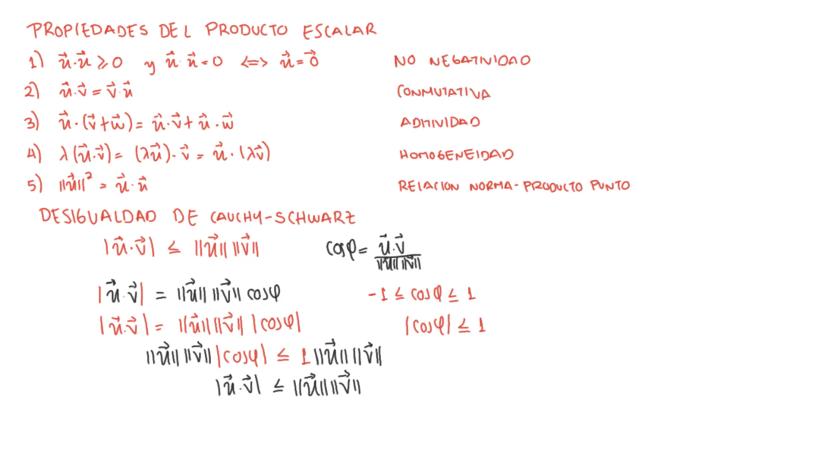 PROPIEDADES DEL PRODUCTO ESCALAR
1) u⃗·u⃗ ≥ 0 y u⃗ u⃗ = 0 <=> u⃗ = 0⃗ NO NEGATIVIDAD
2) u⃗·v⃗ = v⃗·u⃗ CONMUTATIVA
3) u⃗·(v⃗+w⃗) = u⃗·v⃗ + u⃗·w⃗ ADITIVIDAD
4) λ(u⃗·v⃗) = (λu⃗)·v⃗ = u⃗·(λv⃗) HOMOGENEIDAD
5) ||u⃗||² = u⃗·u⃗ RELACION NORMA-PRODUCTO PUNTO
DESIGUALDAD DE CAUCHY-SCHWARZ
|u⃗·v⃗| ≤ ||u⃗|| ||v⃗|| cosφ = u⃗·v⃗ / ||u⃗|| ||v⃗||
|u⃗·v⃗| = ||u⃗|| ||v⃗|| cosφ -1 ≤ cosφ ≤ 1
|u⃗·v⃗| = ||u⃗|| ||v⃗|| |cosφ| |cosφ| ≤ 1
||u⃗|| ||v⃗|| |cosφ| ≤ 1 ||u⃗|| ||v⃗||
|u⃗·v⃗| ≤ ||u⃗|| ||v⃗||